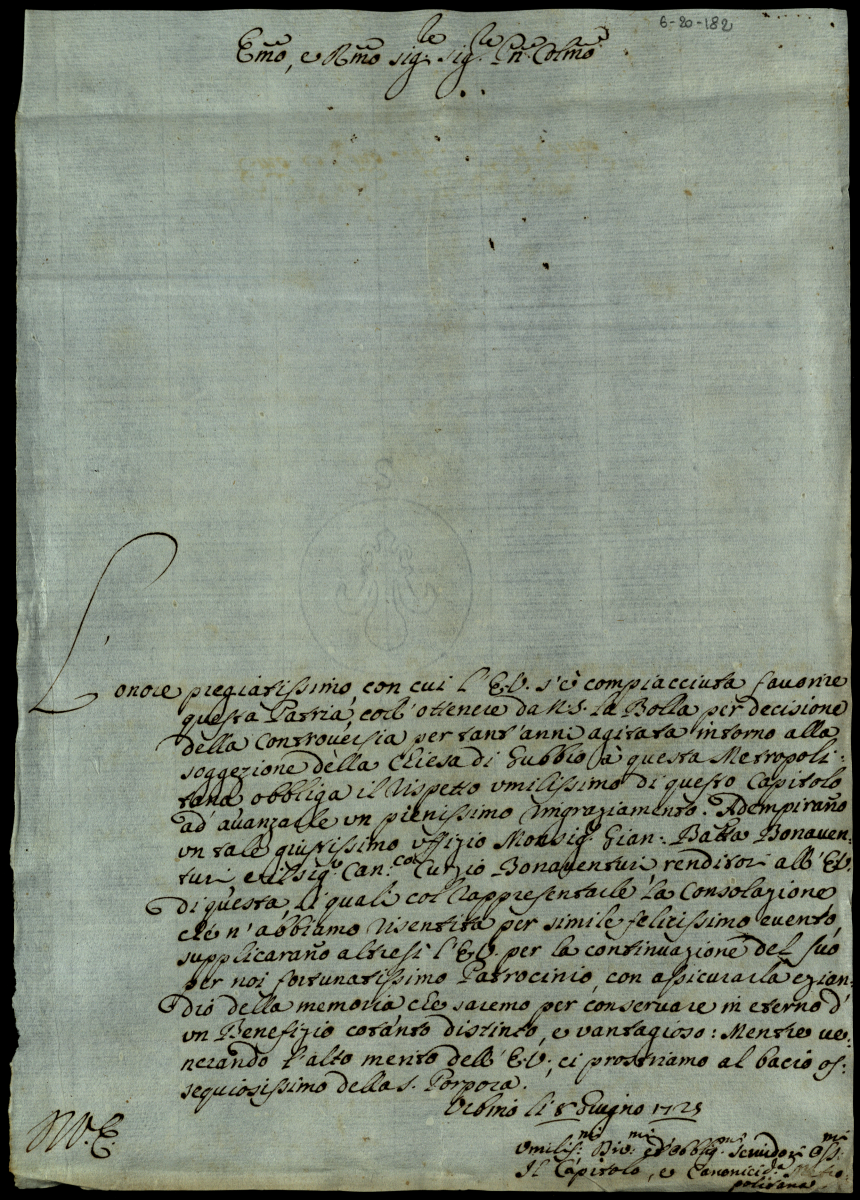 6-20-182
Emo, e Rmo Sig.re Sig.re Pn. Colmo
L'onore pregiatissimo, con cui l'E.V. s'è compiacciuta favorire
questa Patria, coll'ottenere da N.S. la Bolla per decisione
della Controversia per tant'anni agitata intorno alla
soggezione della Chiesa di Gubbio à questa Metropoli-
tana obbliga il rispetto umilissimo di questo Capitolo
ad' avanzarle un pienissimo ringraziamento. Adempirano
un tale giustissimo uffizio Monsig.r Gian. Batta Bonaven-
turi, e il Sig.r Can.co Curzio Bonaventuri renditori all'E.V.
di questa, li quali col rappresentarle la Consolazione
che n'abbiamo risentita per simile felicissimo evento,
supplicarano altresì l'E.V. per la continuazione del suo
per noi fortunatissimo Patrocinio, con assicurarla ezian-
dio della memoria che saremo per conservare in eterno d'
un Benefizio cotanto distinto, e vantagioso: Mentre ve-
nerando l'alto merito dell'E.V., ci prostriamo al bacio os-
sequiosissimo della S. Porpora.
Urbino li 8 Giugno 1725
Umiliss.mi Div.mi ed Obblig.mi Servidori Oss.mi
Il Capitolo, e Canonici d.a Metro-
politana